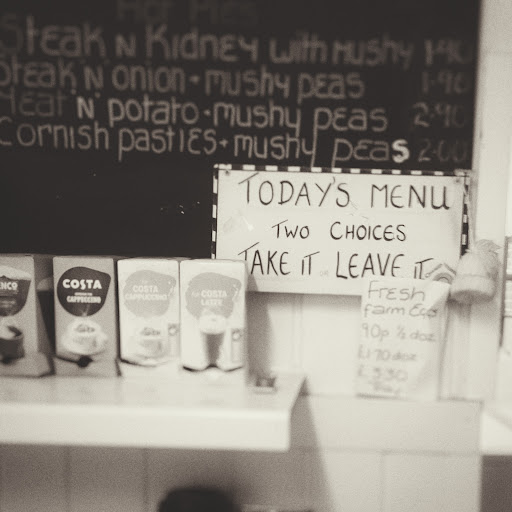 Hot Pies
Steak N Kidney with mushy 1·90
Steak 'N' onion + mushy peas 1·90
Meat 'N' potato + mushy peas 2·90
Cornish pasties + mushy peas 2·00
TODAY'S MENU
TWO CHOICES
TAKE IT OR LEAVE IT
COSTA
CAPPUCCINO
COSTA
CAPPUCCINO
COSTA
LATTE
Fresh
farm Egg
90p ½ doz
£1·70 doz
£3·50